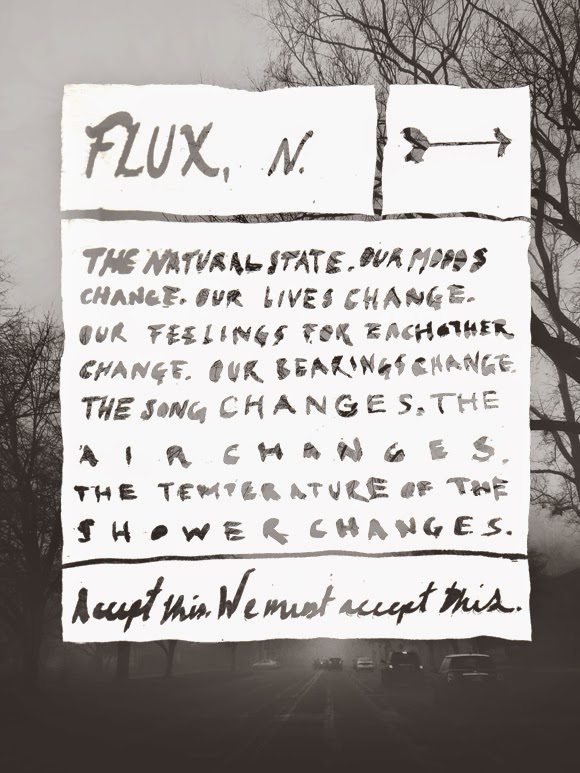 FLUX, N.
THE NATURAL STATE. OUR MOODS
CHANGE. OUR LIVES CHANGE.
OUR FEELINGS FOR EACHOTHER
CHANGE. OUR BEARINGS CHANGE.
THE SONG CHANGES. THE
AIR CHANGES.
THE TEMPERATURE OF THE
SHOWER CHANGES.
Accept this. We must accept this.